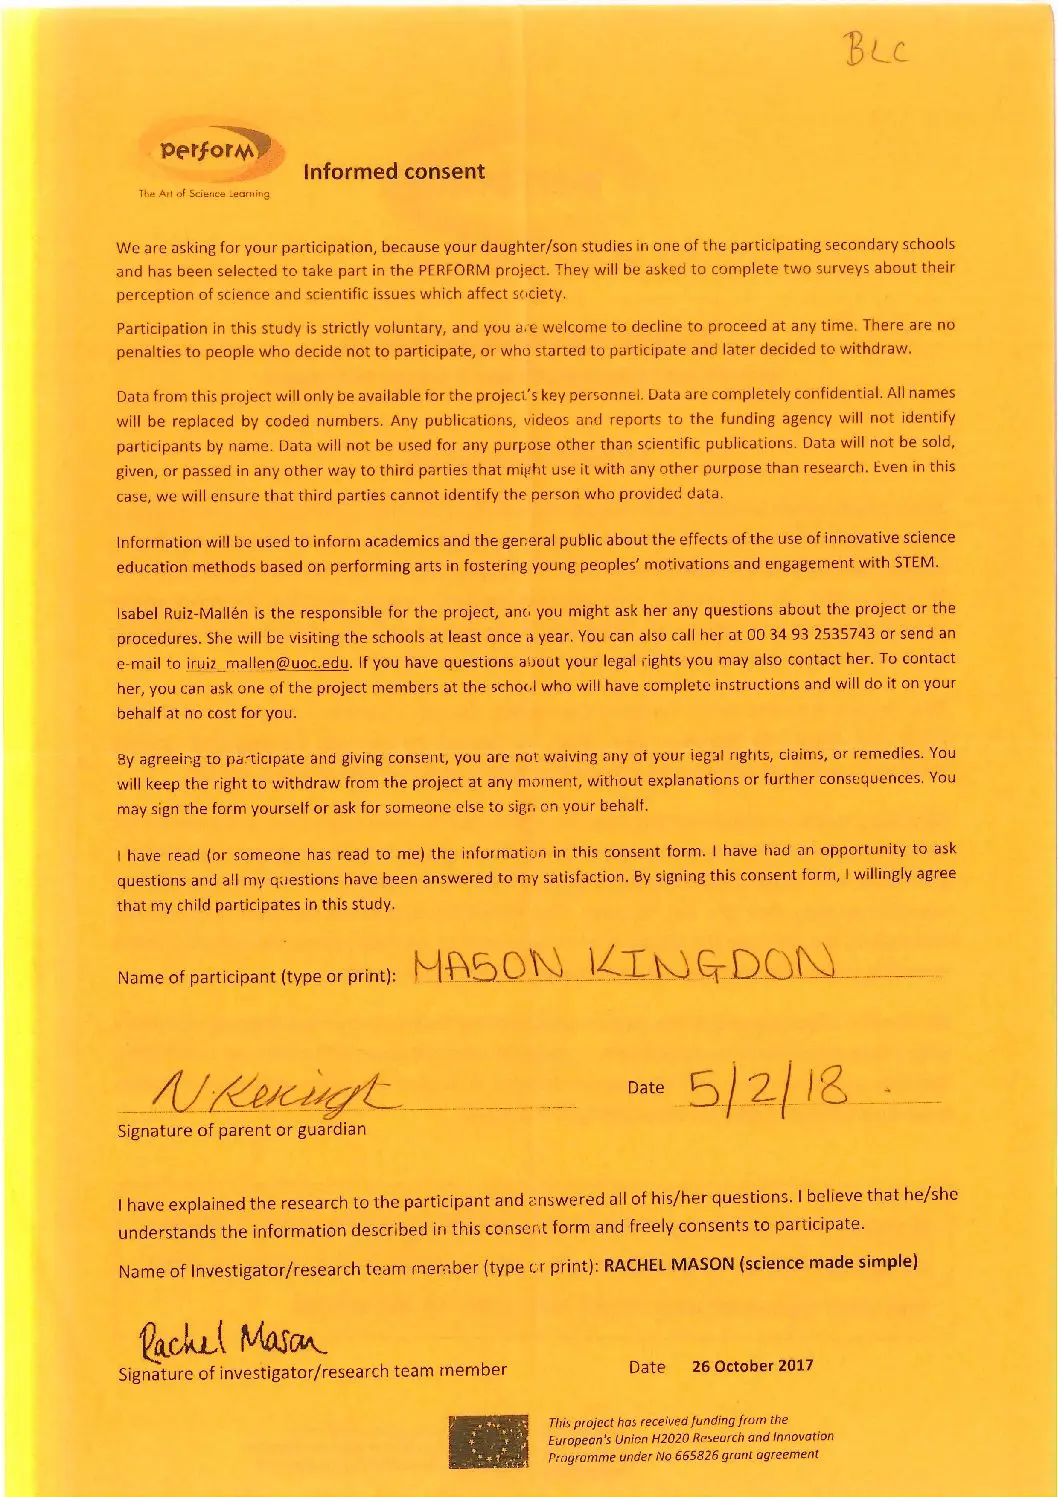 BLC
perform
The Art of Science Learning
Informed consent
We are asking for your participation, because your daughter/son studies in one of the participating secondary schools
and has been selected to take part in the PERFORM project. They will be asked to complete two surveys about their
perception of science and scientific issues which affect society.
Participation in this study is strictly voluntary, and you are welcome to decline to proceed at any time. There are no
penalties to people who decide not to participate, or who started to participate and later decided to withdraw.
Data from this project will only be available for the project's key personnel. Data are completely confidential. All names
will be replaced by coded numbers. Any publications, videos and reports to the funding agency will not identify
participants by name. Data will not be used for any purpose other than scientific publications. Data will not be sold,
given, or passed in any other way to third parties that might use it with any other purpose than research. Even in this
case, we will ensure that third parties cannot identify the person who provided data.
Information will be used to inform academics and the general public about the effects of the use of innovative science
education methods based on performing arts in fostering young peoples' motivations and engagement with STEM.
Isabel Ruiz-Mallén is the responsible for the project, and you might ask her any questions about the project or the
procedures. She will be visiting the schools at least once a year. You can also call her at 00 34 93 2535743 or send an
e-mail to iruiz_mallen@uoc.edu. If you have questions about your legal rights you may also contact her. To contact
her, you can ask one of the project members at the school who will have complete instructions and will do it on your
behalf at no cost for you.
By agreeing to participate and giving consent, you are not waiving any of your legal rights, claims, or remedies. You
will keep the right to withdraw from the project at any moment, without explanations or further consequences. You
may sign the form yourself or ask for someone else to sign on your behalf.
I have read (or someone has read to me) the information in this consent form. I have had an opportunity to ask
questions and all my questions have been answered to my satisfaction. By signing this consent form, I willingly agree
that my child participates in this study.
Name of participant (type or print): MASON KINGDON
Date 5/2/18
Signature of parent or guardian
I have explained the research to the participant and answered all of his/her questions. I believe that he/she
understands the information described in this consent form and freely consents to participate.
Name of Investigator/research team member (type or print): RACHEL MASON (science made simple)
Rachel Mason
Signature of investigator/research team member Date 26 October 2017
This project has received funding from the
European's Union H2020 Research and Innovation
Programme under No 665826 grant agreement